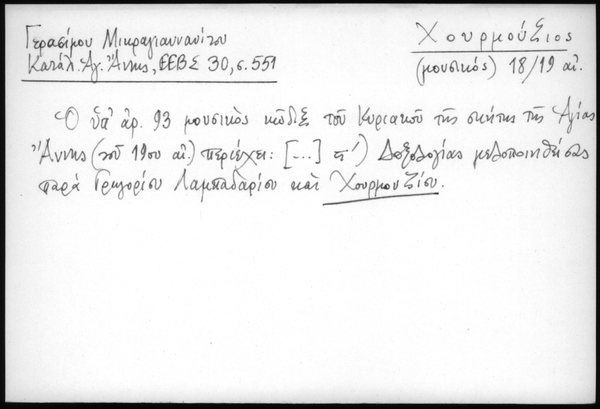 Γερασίμου Μικραγιαννανίτου
Κατάλ. Ἁγ. Ἄννης, ΕΕΒΣ 30, σ. 551
Χουρμούζιος
(μουσικός) 18/19 αἰ.
Ὁ ὑπ' ἀρ. 93 μουσικὸς κῶδιξ τοῦ Κυριακοῦ τῆς σκήτης τῆς Ἁγίας
Ἄννης (τοῦ 19ου αἰ.) περιέχει: [...] ς') Δοξολογίας μελοποιηθείσας
παρὰ Γρηγορίου Λαμπαδαρίου καὶ Χουρμουζίου.